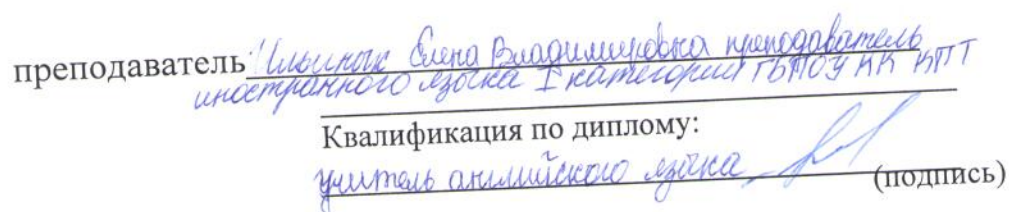 преподаватель Ильинык Елена Владимировна преподаватель
иностранного языка I категории ГБПОУ КК КПТ
Квалификация по диплому:
учитель английского языка
(подпись)